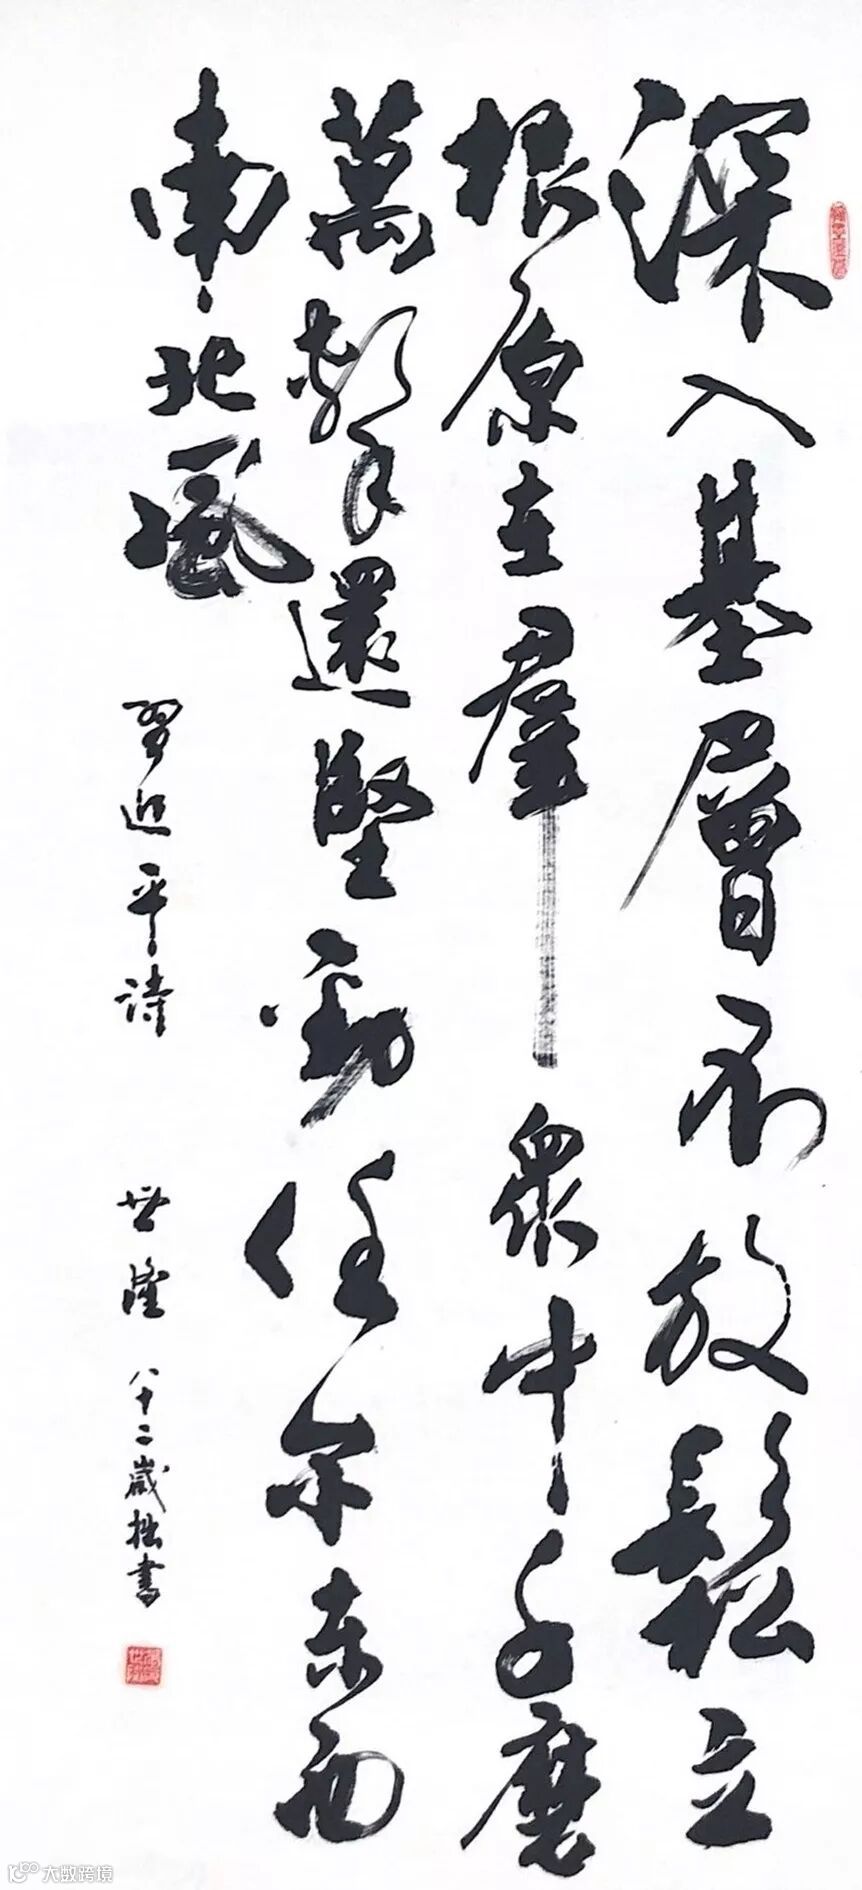 深入基層不放鬆立
根原在羣衆中千磨
萬擊還堅勁任尔東西
南北風
習近平詩
世隆 八十二歲拙書
大数跨境